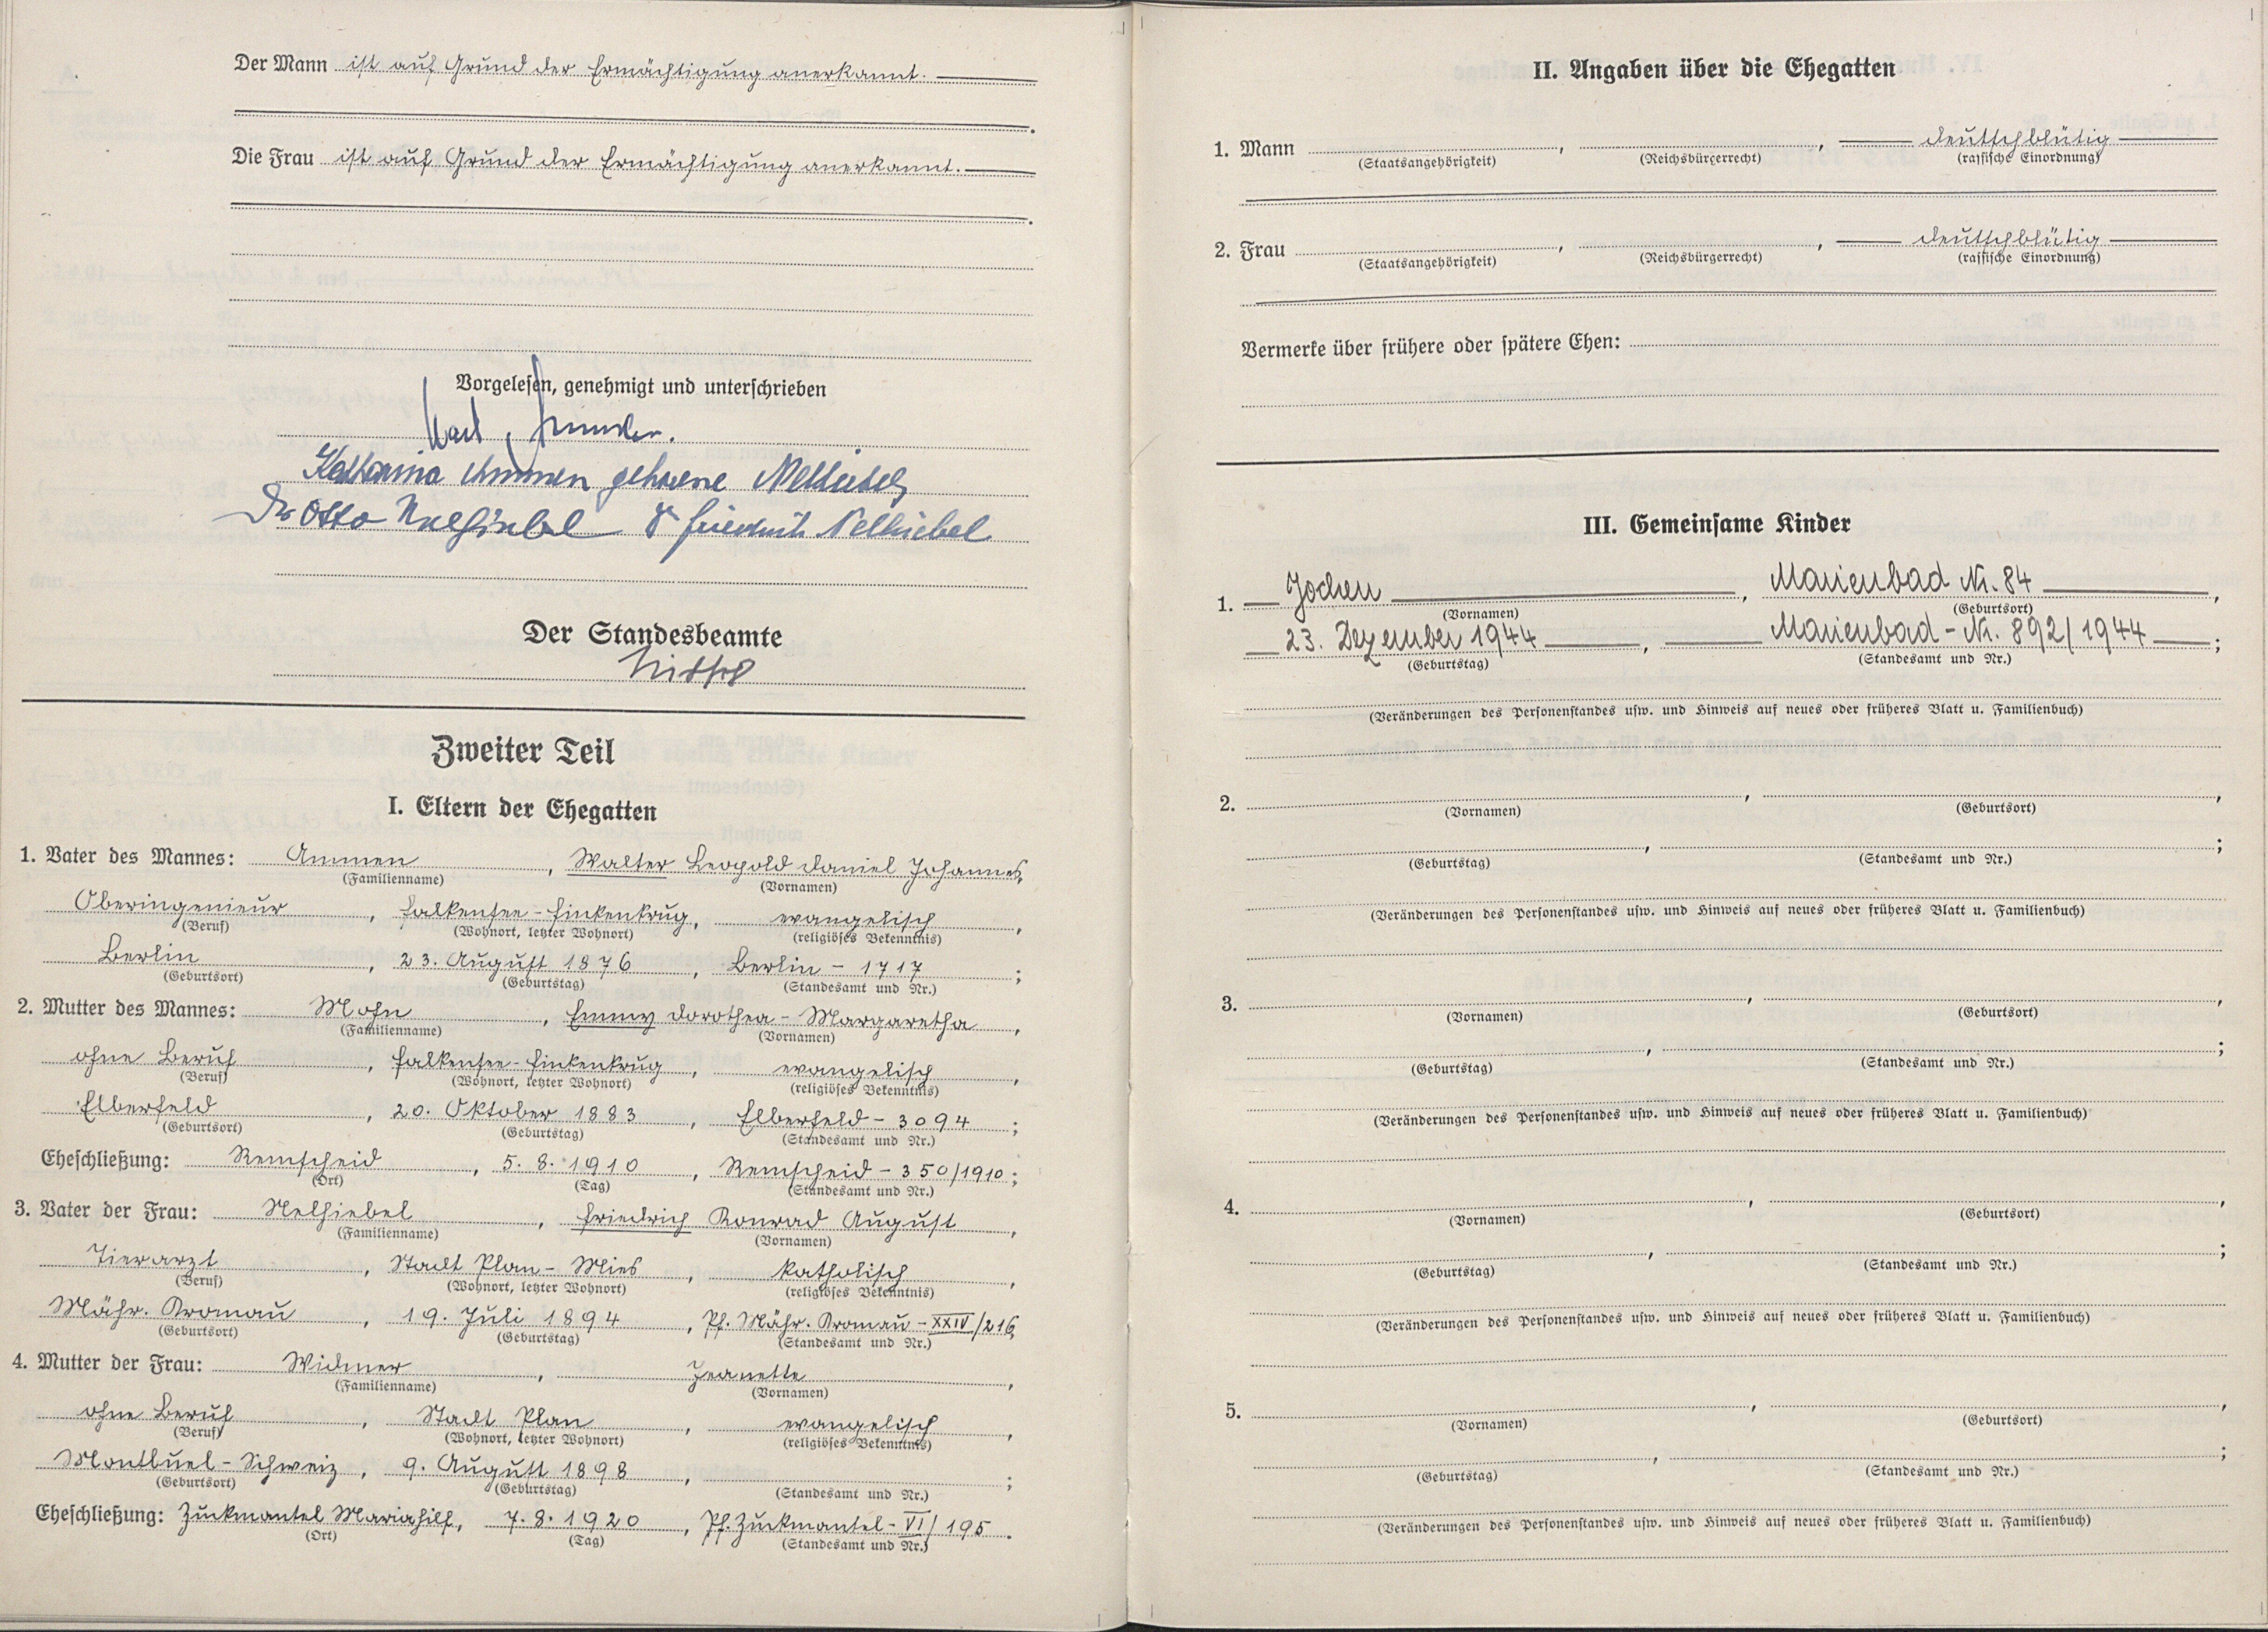 Der Mann ist auf Grund der Ermächtigung anerkannt.
Die Frau ist auf Grund der Ermächtigung anerkannt.
Vorgelesen, genehmigt und unterschrieben
Karl Ammen.
Katharina Ammen geborene Nelhiebel
Dr Otto Nelhiebel Dr Friedrich Nelhiebel
Der Standesbeamte
Zweiter Teil
I. Eltern der Ehegatten
1. Vater des Mannes: Ammen, Walter Leopold Daniel Johannes,
(Familienname) (Vornamen)
Oberingenieur, Falkensee-Finkenkrug, evangelisch,
(Beruf) (Wohnort, letzter Wohnort) (religiöses Bekenntnis)
Berlin, 23. August 1876, Berlin - 1717;
(Geburtsort) (Geburtstag) (Standesamt und Nr.)
2. Mutter des Mannes: Mohn, Emmy Dorothea-Margaretha,
(Familienname) (Vornamen)
ohne Beruf, Falkensee-Finkenkrug, evangelisch,
(Beruf) (Wohnort, letzter Wohnort) (religiöses Bekenntnis)
Elberfeld, 20. Oktober 1883, Elberfeld - 3094;
(Geburtsort) (Geburtstag) (Standesamt und Nr.)
Eheschließung: Remscheid, 5. 8. 1910, Remscheid - 350/1910;
(Ort) (Tag) (Standesamt und Nr.)
3. Vater der Frau: Nelhiebel, Friedrich Konrad August,
(Familienname) (Vornamen)
Tierarzt, Stadt Plan - Mies, katholisch,
(Beruf) (Wohnort, letzter Wohnort) (religiöses Bekenntnis)
Mähr. Kromau, 19. Juli 1894, Pf. Mähr. Kromau - XXIV/216;
(Geburtsort) (Geburtstag) (Standesamt und Nr.)
4. Mutter der Frau: Widmer, Jeanette,
(Familienname) (Vornamen)
ohne Beruf, Stadt Plan, evangelisch,
(Beruf) (Wohnort, letzter Wohnort) (religiöses Bekenntnis)
Montbuel - Schweiz, 9. August 1898, ;
(Geburtsort) (Geburtstag) (Standesamt und Nr.)
Eheschließung: Zuckmantel Mariahilf, 7. 8. 1920, Pf. Zuckmantel - VI/195.
(Ort) (Tag) (Standesamt und Nr.)
II. Angaben über die Ehegatten
1. Mann , , deutschblütig
(Staatsangehörigkeit) (Reichsbürgerrecht) (rassische Einordnung)
2. Frau , , deutschblütig
(Staatsangehörigkeit) (Reichsbürgerrecht) (rassische Einordnung)
Vermerke über frühere oder spätere Ehen:
III. Gemeinsame Kinder
1. Jochen, Marienbad Nr. 84,
(Vornamen) (Geburtsort)
23. Dezember 1944, Marienbad - Nr. 892/1944;
(Geburtstag) (Standesamt und Nr.)
(Veränderungen des Personenstandes usw. und Hinweis auf neues oder früheres Blatt u. Familienbuch)
2. , ,
(Vornamen) (Geburtsort)
, ;
(Geburtstag) (Standesamt und Nr.)
(Veränderungen des Personenstandes usw. und Hinweis auf neues oder früheres Blatt u. Familienbuch)
3. , ,
(Vornamen) (Geburtsort)
, ;
(Geburtstag) (Standesamt und Nr.)
(Veränderungen des Personenstandes usw. und Hinweis auf neues oder früheres Blatt u. Familienbuch)
4. , ,
(Vornamen) (Geburtsort)
, ;
(Geburtstag) (Standesamt und Nr.)
(Veränderungen des Personenstandes usw. und Hinweis auf neues oder früheres Blatt u. Familienbuch)
5. , ,
(Vornamen) (Geburtsort)
, ;
(Geburtstag) (Standesamt und Nr.)
(Veränderungen des Personenstandes usw. und Hinweis auf neues oder früheres Blatt u. Familienbuch)